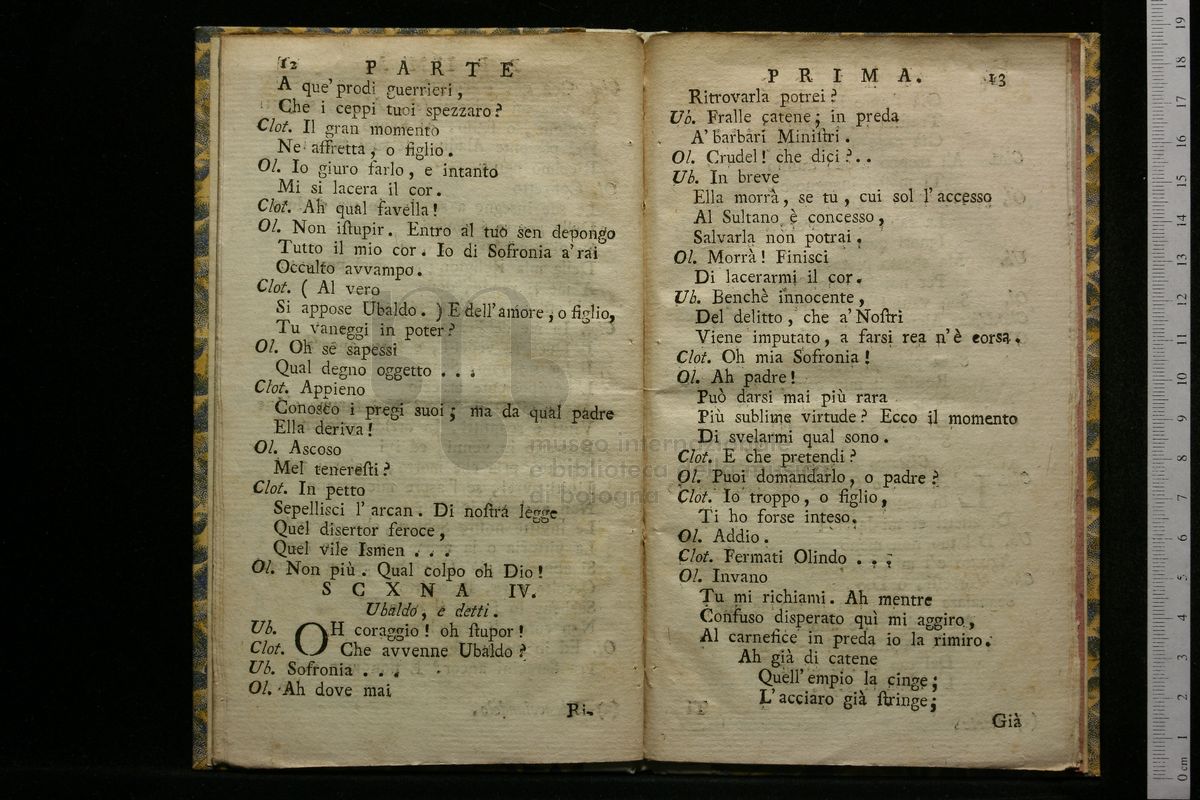 12 PARTE
A que' prodi guerrieri,
Che i ceppi tuoi spezzaro?
Clot. Il gran momento
Ne affretta, o figlio.
Ol. Io giuro farlo, e intanto
Mi si lacera il cor.
Clot. Ah qual favella!
Ol. Non iſtupir. Entro al tuo sen depongo
Tutto il mio cor. Io di Sofronia a' rai
Occulto avvampo.
Clot. ( Al vero
Si appose Ubaldo. ) E dell'amore, o figlio,
Tu vaneggi in poter?
Ol. Oh se sapessi
Qual degno oggetto . . .
Clot. Appieno
Conosco i pregi suoi; ma da qual padre
Ella deriva!
Ol. Ascoso
Mel tenereſti?
Clot. In petto
Sepellisci l'arcan. Di noſtra legge
Quel disertor feroce,
Quel vile Ismen . . .
Ol. Non più. Qual colpo oh Dio!
SCXNA IV.
Ubaldo, e detti.
Ub. OH coraggio! oh ſtupor!
Clot. Che avvenne Ubaldo?
Ub. Sofronia . . .
Ol. Ah dove mai
Ri-
PRIMA. 13
Ritrovarla potrei?
Ub. Fralle catene; in preda
A' barbari Miniſtri.
Ol. Crudel! che dici?..
Ub. In breve
Ella morrà, se tu, cui sol l'accesso
Al Sultano è concesso,
Salvarla non potrai.
Ol. Morrà! Finisci
Di lacerarmi il cor.
Ub. Benchè innocente,
Del delitto, che a' Noſtri
Viene imputato, a farsi rea n'è corsa.
Clot. Oh mia Sofronia!
Ol. Ah padre!
Può darsi mai più rara
Più sublime virtude? Ecco il momento
Di svelarmi qual sono.
Clot. E che pretendi?
Ol. Puoi domandarlo, o padre?
Clot. Io troppo, o figlio,
Ti ho forse inteso.
Ol. Addio.
Clot. Fermati Olindo . . .
Ol. Invano
Tu mi richiami. Ah mentre
Confuso disperato quì mi aggiro,
Al carnefice in preda io la rimiro.
Ah già di catene
Quell'empio la cinge;
L'acciaro già ſtringe;
Già
museo internazionale
e biblioteca della musica
di bologna
0 cm 1 2 3 4 5 6 7 8 9 10 11 12 13 14 15 16 17 18 19